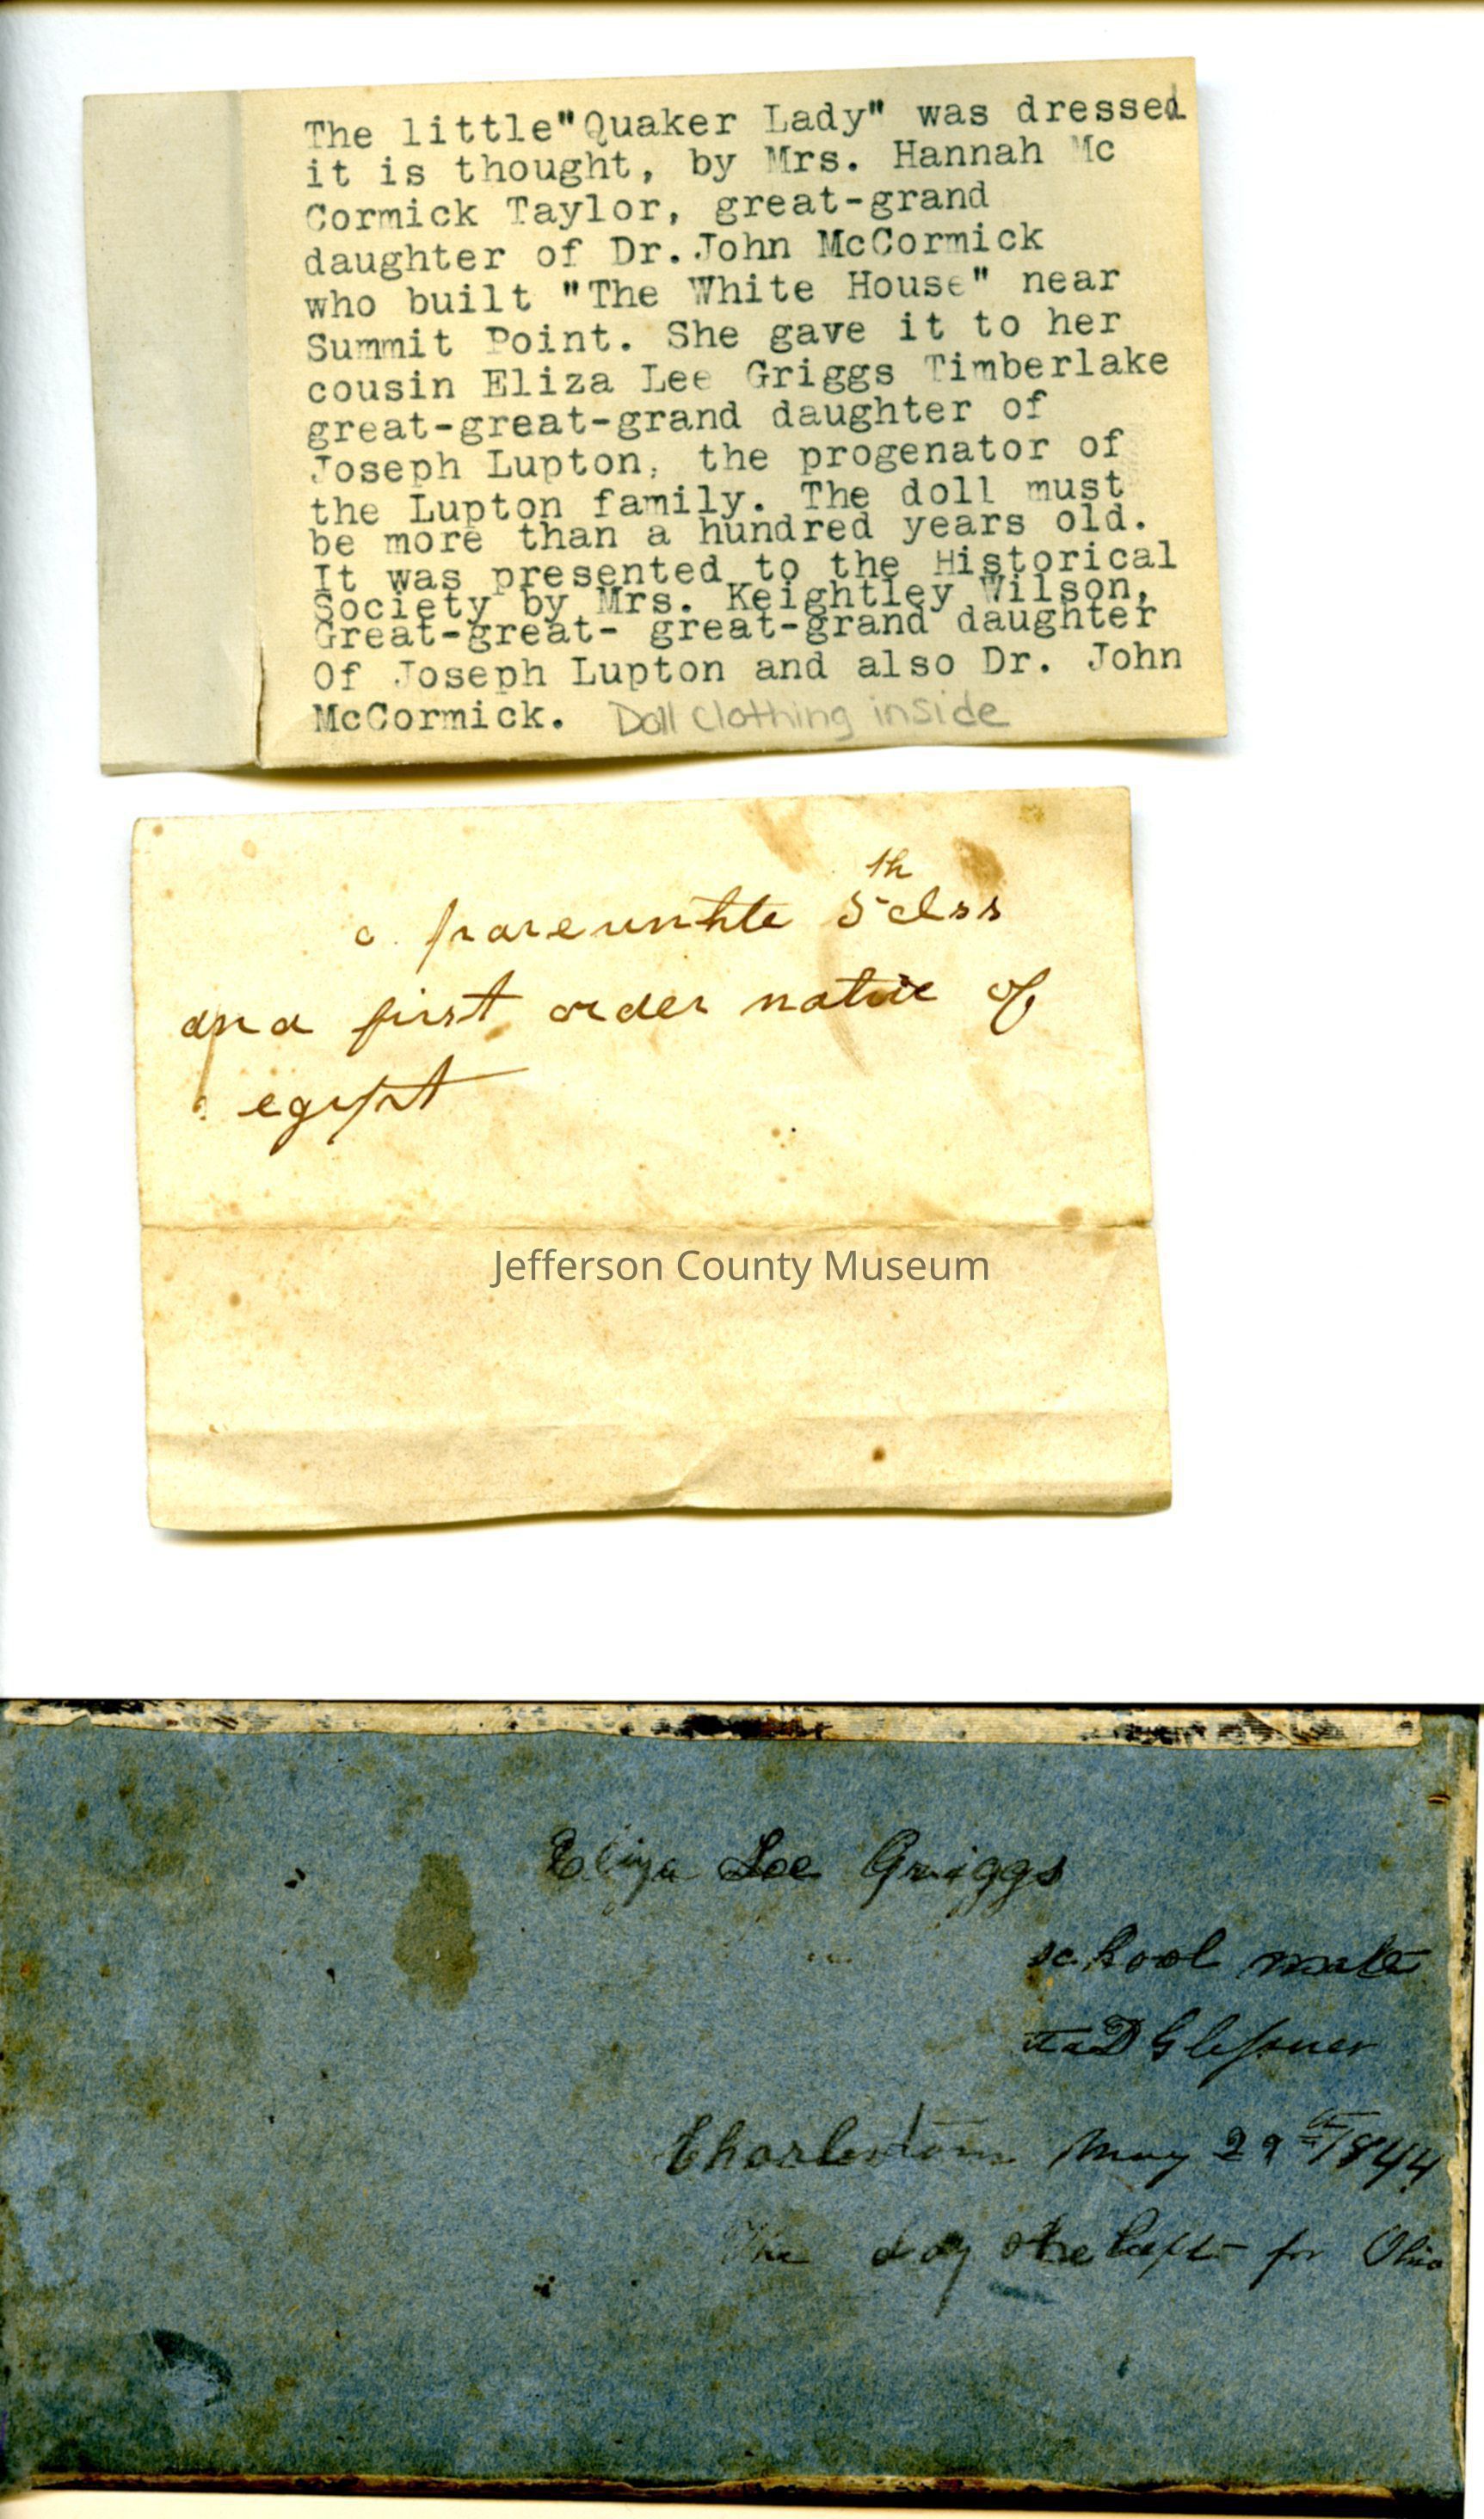 The little"Quaker Lady" was dressed
it is thought, by Mrs. Hannah Mc
Cormick Taylor, great-grand
daughter of Dr.John McCormick
who built "The White House" near
Summit Point. She gave it to her
cousin Eliza Lee Griggs Timberlake
great-great-grand daughter of
Joseph Lupton, the progenator of
the Lupton family. The doll must
be more than a hundred years old.
It was presented to the Historical
Society by Mrs. Keightley Wilson,
Great-great- great-grand daughter
Of Joseph Lupton and also Dr. John
McCormick. Doll Clothing inside
5th
and first order native of
egypt
Jefferson County Museum
Eliza Lee Griggs
school mate
Charlestown May 29th 1844
The day she left for Ohio